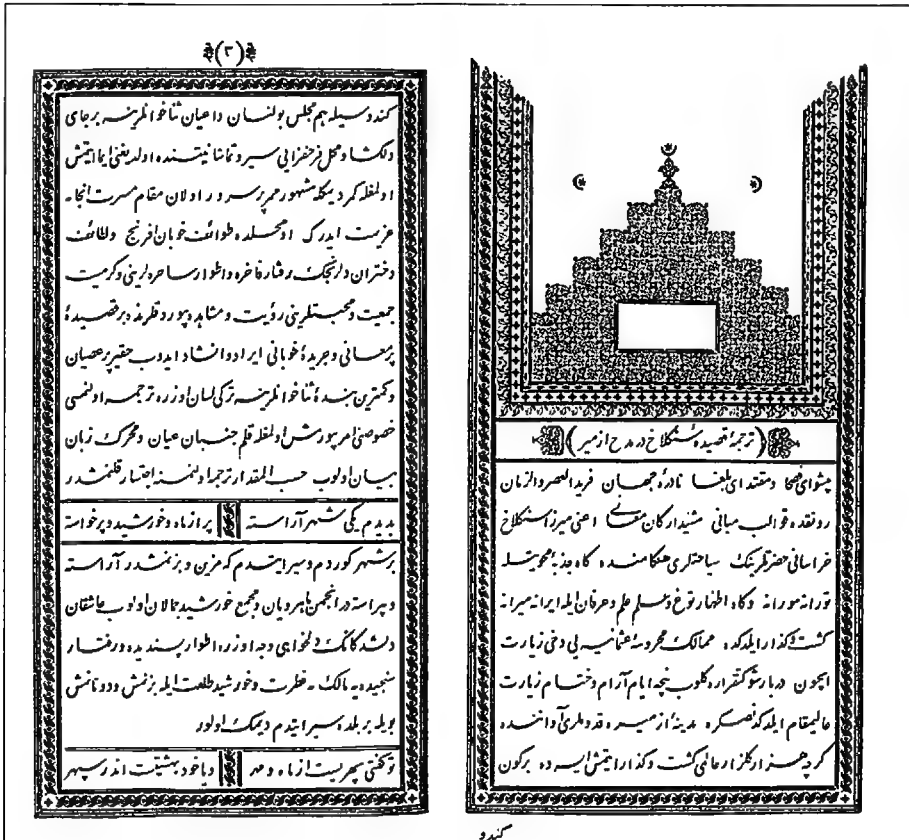 (ترجمهٔ قصیدهٔ سنگلاخ در مدح ازمیر)
پیشوای فصحا و مقتدای بلغا نادرهٔ جهان فرید العصر والزمان
رونقده قوالب مبانی مشید ارکان معانی اعنی میرزا سنگلاخ
خراسانی حضرتلرینك سیاحتلری هنکامنده کاه جذبهٔ محویتله
تورانه مورانه و کاه اظهار توغ و علم علم و عرفان ایله ایرانه میرانه
کشت و کذار ایلدکده ممالك محروسهٔ عثمانیه یی دخی زیارت
ایچون دربار شوکتقراره کلوب نیچه ایام آرام و ختام زیارت
عالیمقام ایلدکدنصکره مدینهٔ ازمیره قدوملری آواننده
کرچه هزار کلزار عالمی کشت و کذار ایتمش ایسه ده برکون
کندو
(۲)
کندوسیله هم مجلس بولنان داعیان ثناخوانلرینه برجای
دلکشا و محل فرحفزایی سیر و تماشا نیتنده اولدیغنی ایما ایتمش
اولمغله کمر دیمکله مشهور ممر پرسرور اولان مقام مسرت انجامه
عزیمت ایدرك اومحلده طوائف خوبان افرنج و لطائف
دختران دلرنجك رفتار فاخره و اطوار ساحره لرینی و کرمیت
جمعیت و محبتلرینی رؤیت و مشاهده بیوردقلرنده بر قصیدهٔ
پرمعانی و جریدهٔ خوبانی ایراد و انشاد ایدوب حقیر پرعصیان
و کمترین بندهٔ ثناخوانلرینه ترکی لسان اوزره ترجمه اولنمسی
خصوصنی امر بیورمش اولمغله قلم جنبان عیان و محرك زبان
بیان اولوب حسب المقدار ترجمه اولنمسنه ابتدار قلنمشدر
بدیدم یکی شهر آراسته پر از ماه و خورشید و پرخواسته
بر شهر کوردم و سیر ایتدم که مزین و بزنمشدر آراسته
و پیراسته در انجمن ماهرویان و مجمع خورشید جمالان اولوب عاشقان
دلشدکانك دلخواهی وجه اوزره اطوار پسندیده و رفتار
سنجیده یه مالك مه فطرت و خورشید طلعت ایله بزنمش و دونانمش
بویله بر بلده سیر ایتدم دیمك اولور
تو کفتی سپهریست از ماه و مهر و یا خود بهشتیت اندر سپهر